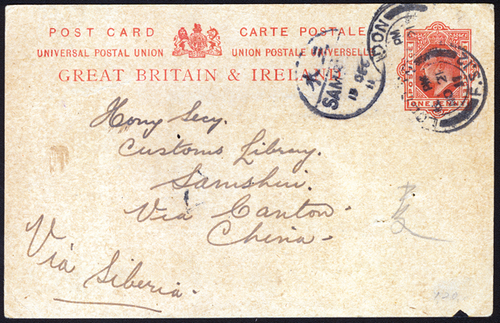 POST CARD CARTE POSTALE
UNIVERSAL POSTAL UNION UNION POSTALE UNIVERSELLE
GREAT BRITAIN & IRELAND
POSTAGE
ONE PENNY
三水
SAM
DEC
11
PM
Hony Secy.
Customs Library.
Samshui.
Via Canton.
China.
Via Siberia.